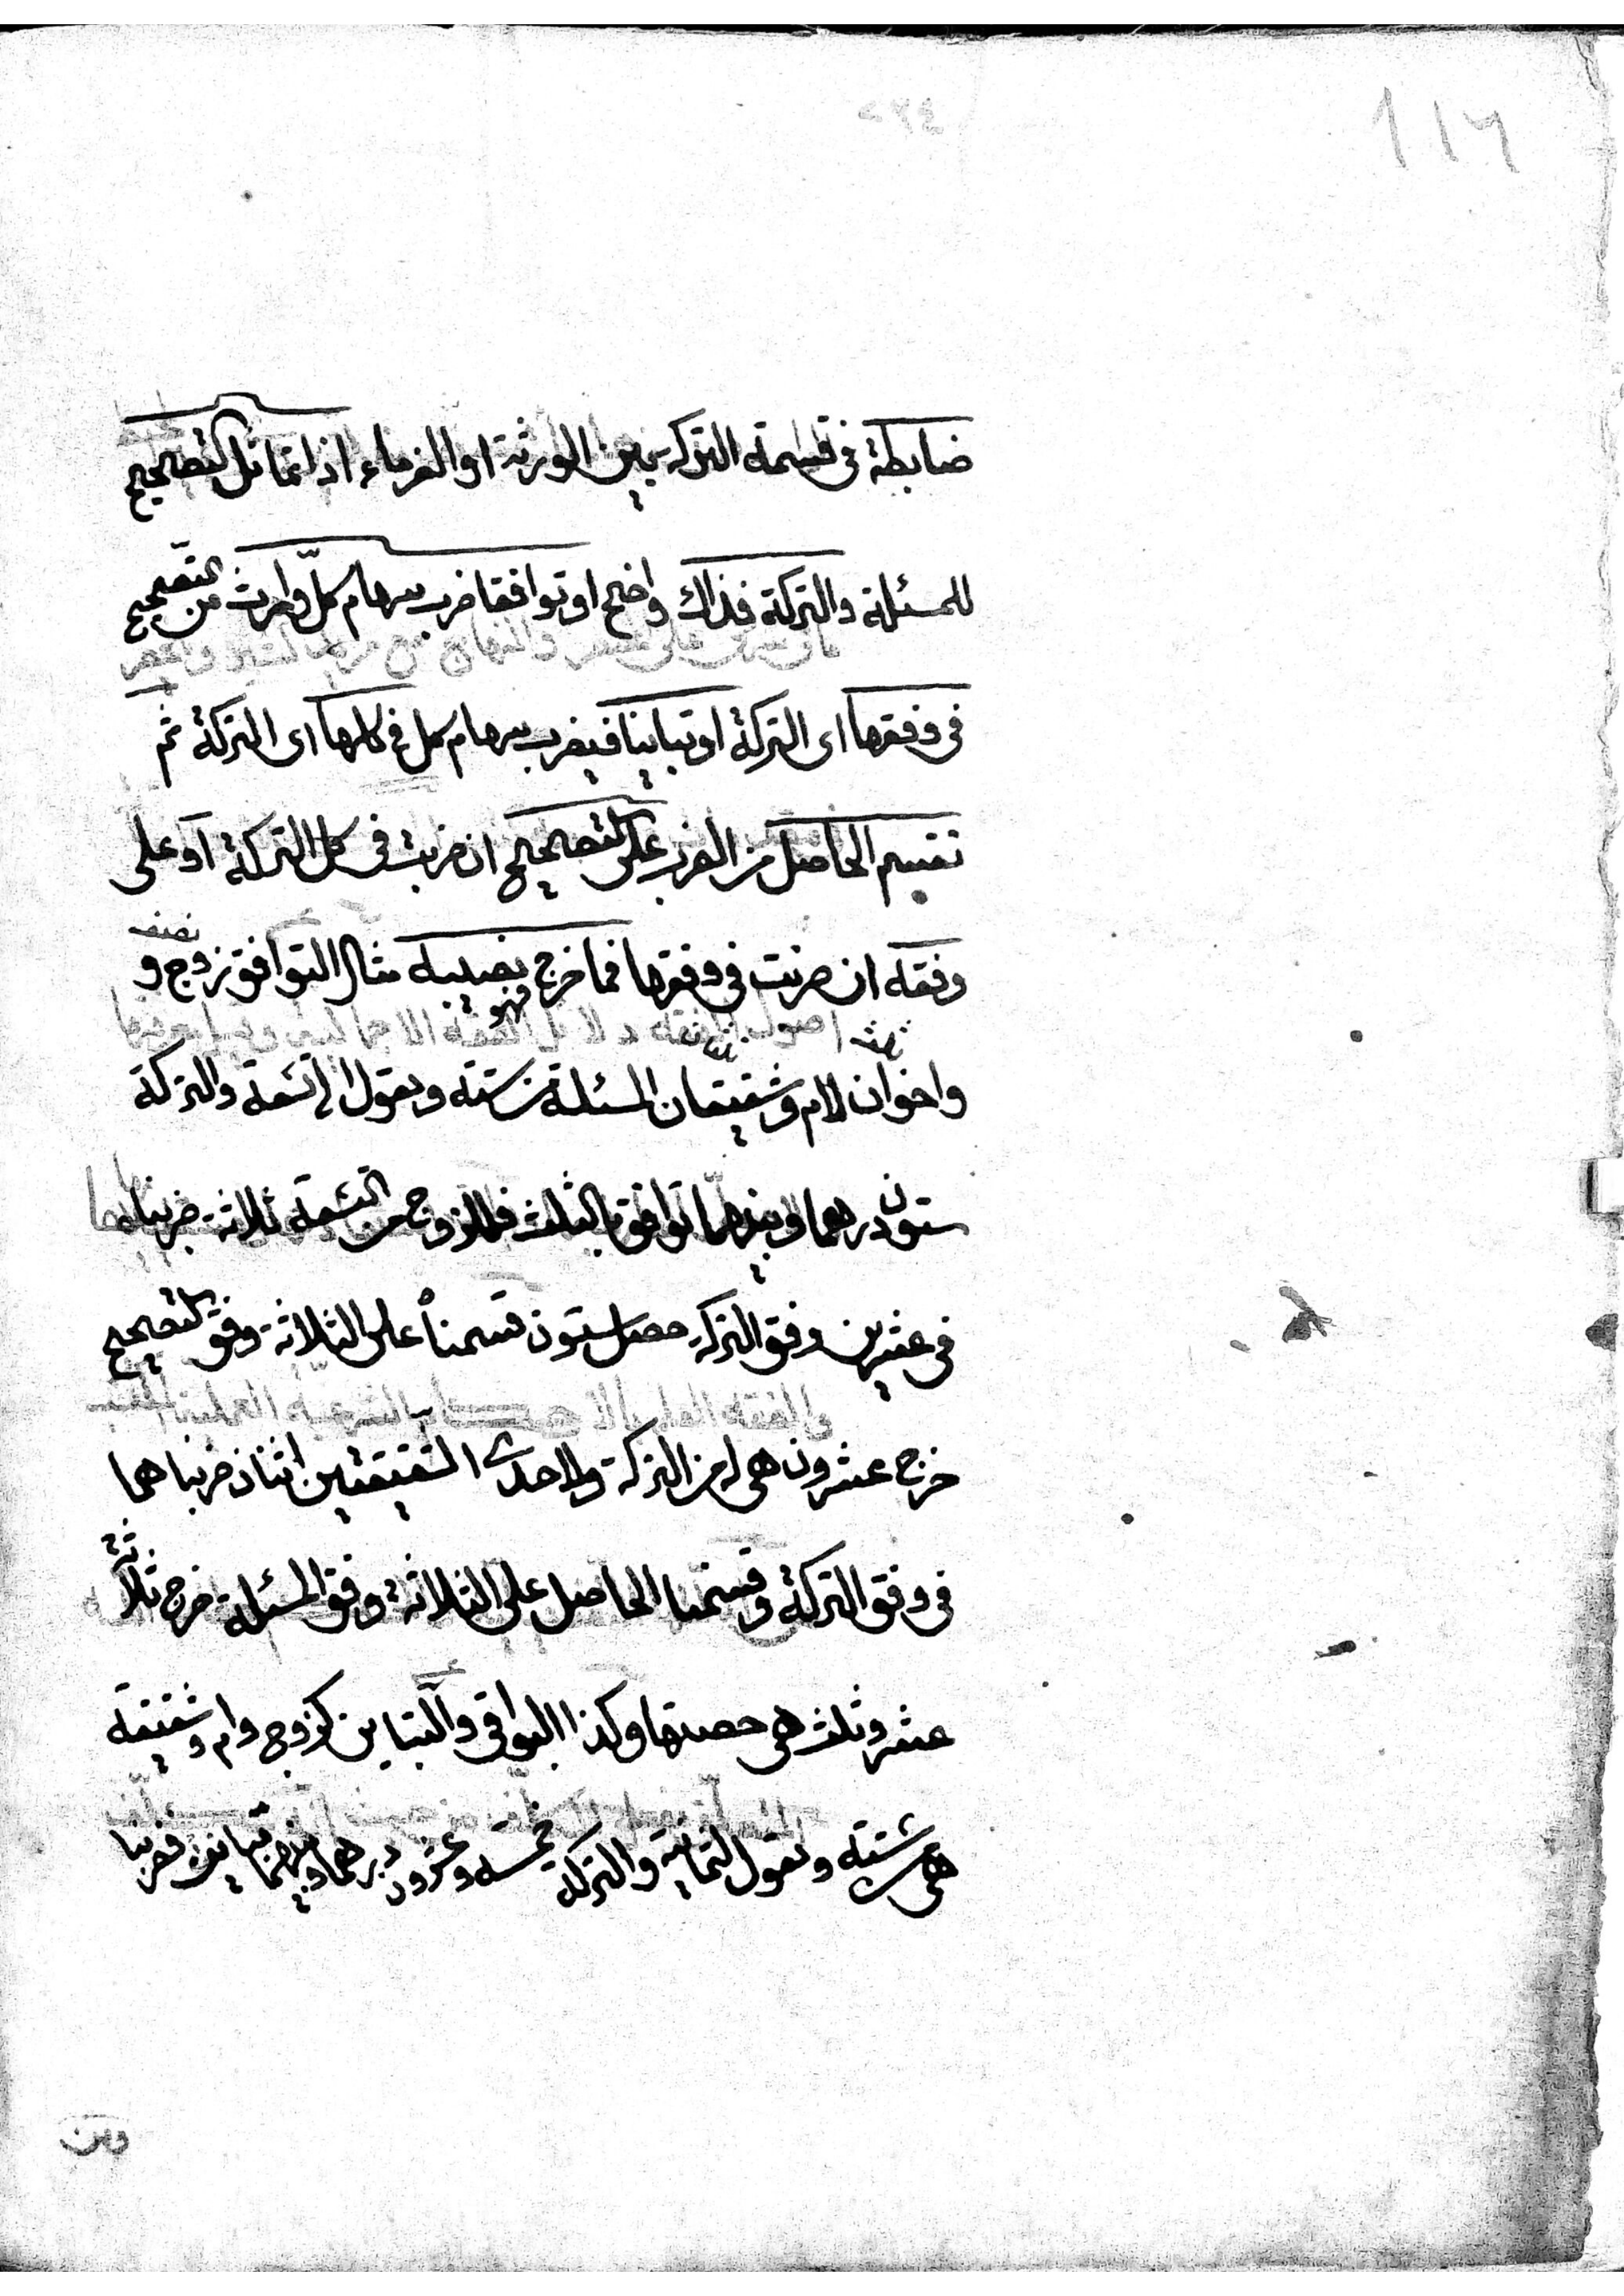 ١١٦
ضابطة فى قسمة التركة بين الورثة او الغرماء اذا تماثل التصحيح
للمسئلة والتركة فذاك واضح او توافقا ضرب سهام كلّ وارث من التصحيح
فى وفقها اى التركة او تباينا فيضرب سهام كل فى كلها اى التركة ثم
تقسيم الحاصل من الضرب على التصحيح ان ضربت فى كل التركة او على
وفقه ان ضربت فى وفقها فما خرج فهو نصيبه مثال التوافق زوج و نصف
واخوان لام وشقيقتان المسئلة من ستة وتعول الى تسعة والتركة
ثلث ثلثان
ستون درهما وبينهما توافق بالثلث فللزوج من التسعة ثلاثة ضربناها
فى عشرين وفق التركة حصل ستون قسمناه على الثلاثة وفق التصحيح
خرج عشرون هى له من التركة ولاحدى الشقيقتين اثنان ضربناهما
فى وفق التركة وقسمنا الحاصل على الثلاثة وفق المسئلة خرج ثلاثة
عشر وثلث هى حصتها وكذا البواقى والتباين كزوج وام وشقيقة
هى من ستة وتعول لثمانية والتركة خمسة وعشرون درهما وبينهما تباين فضربنا